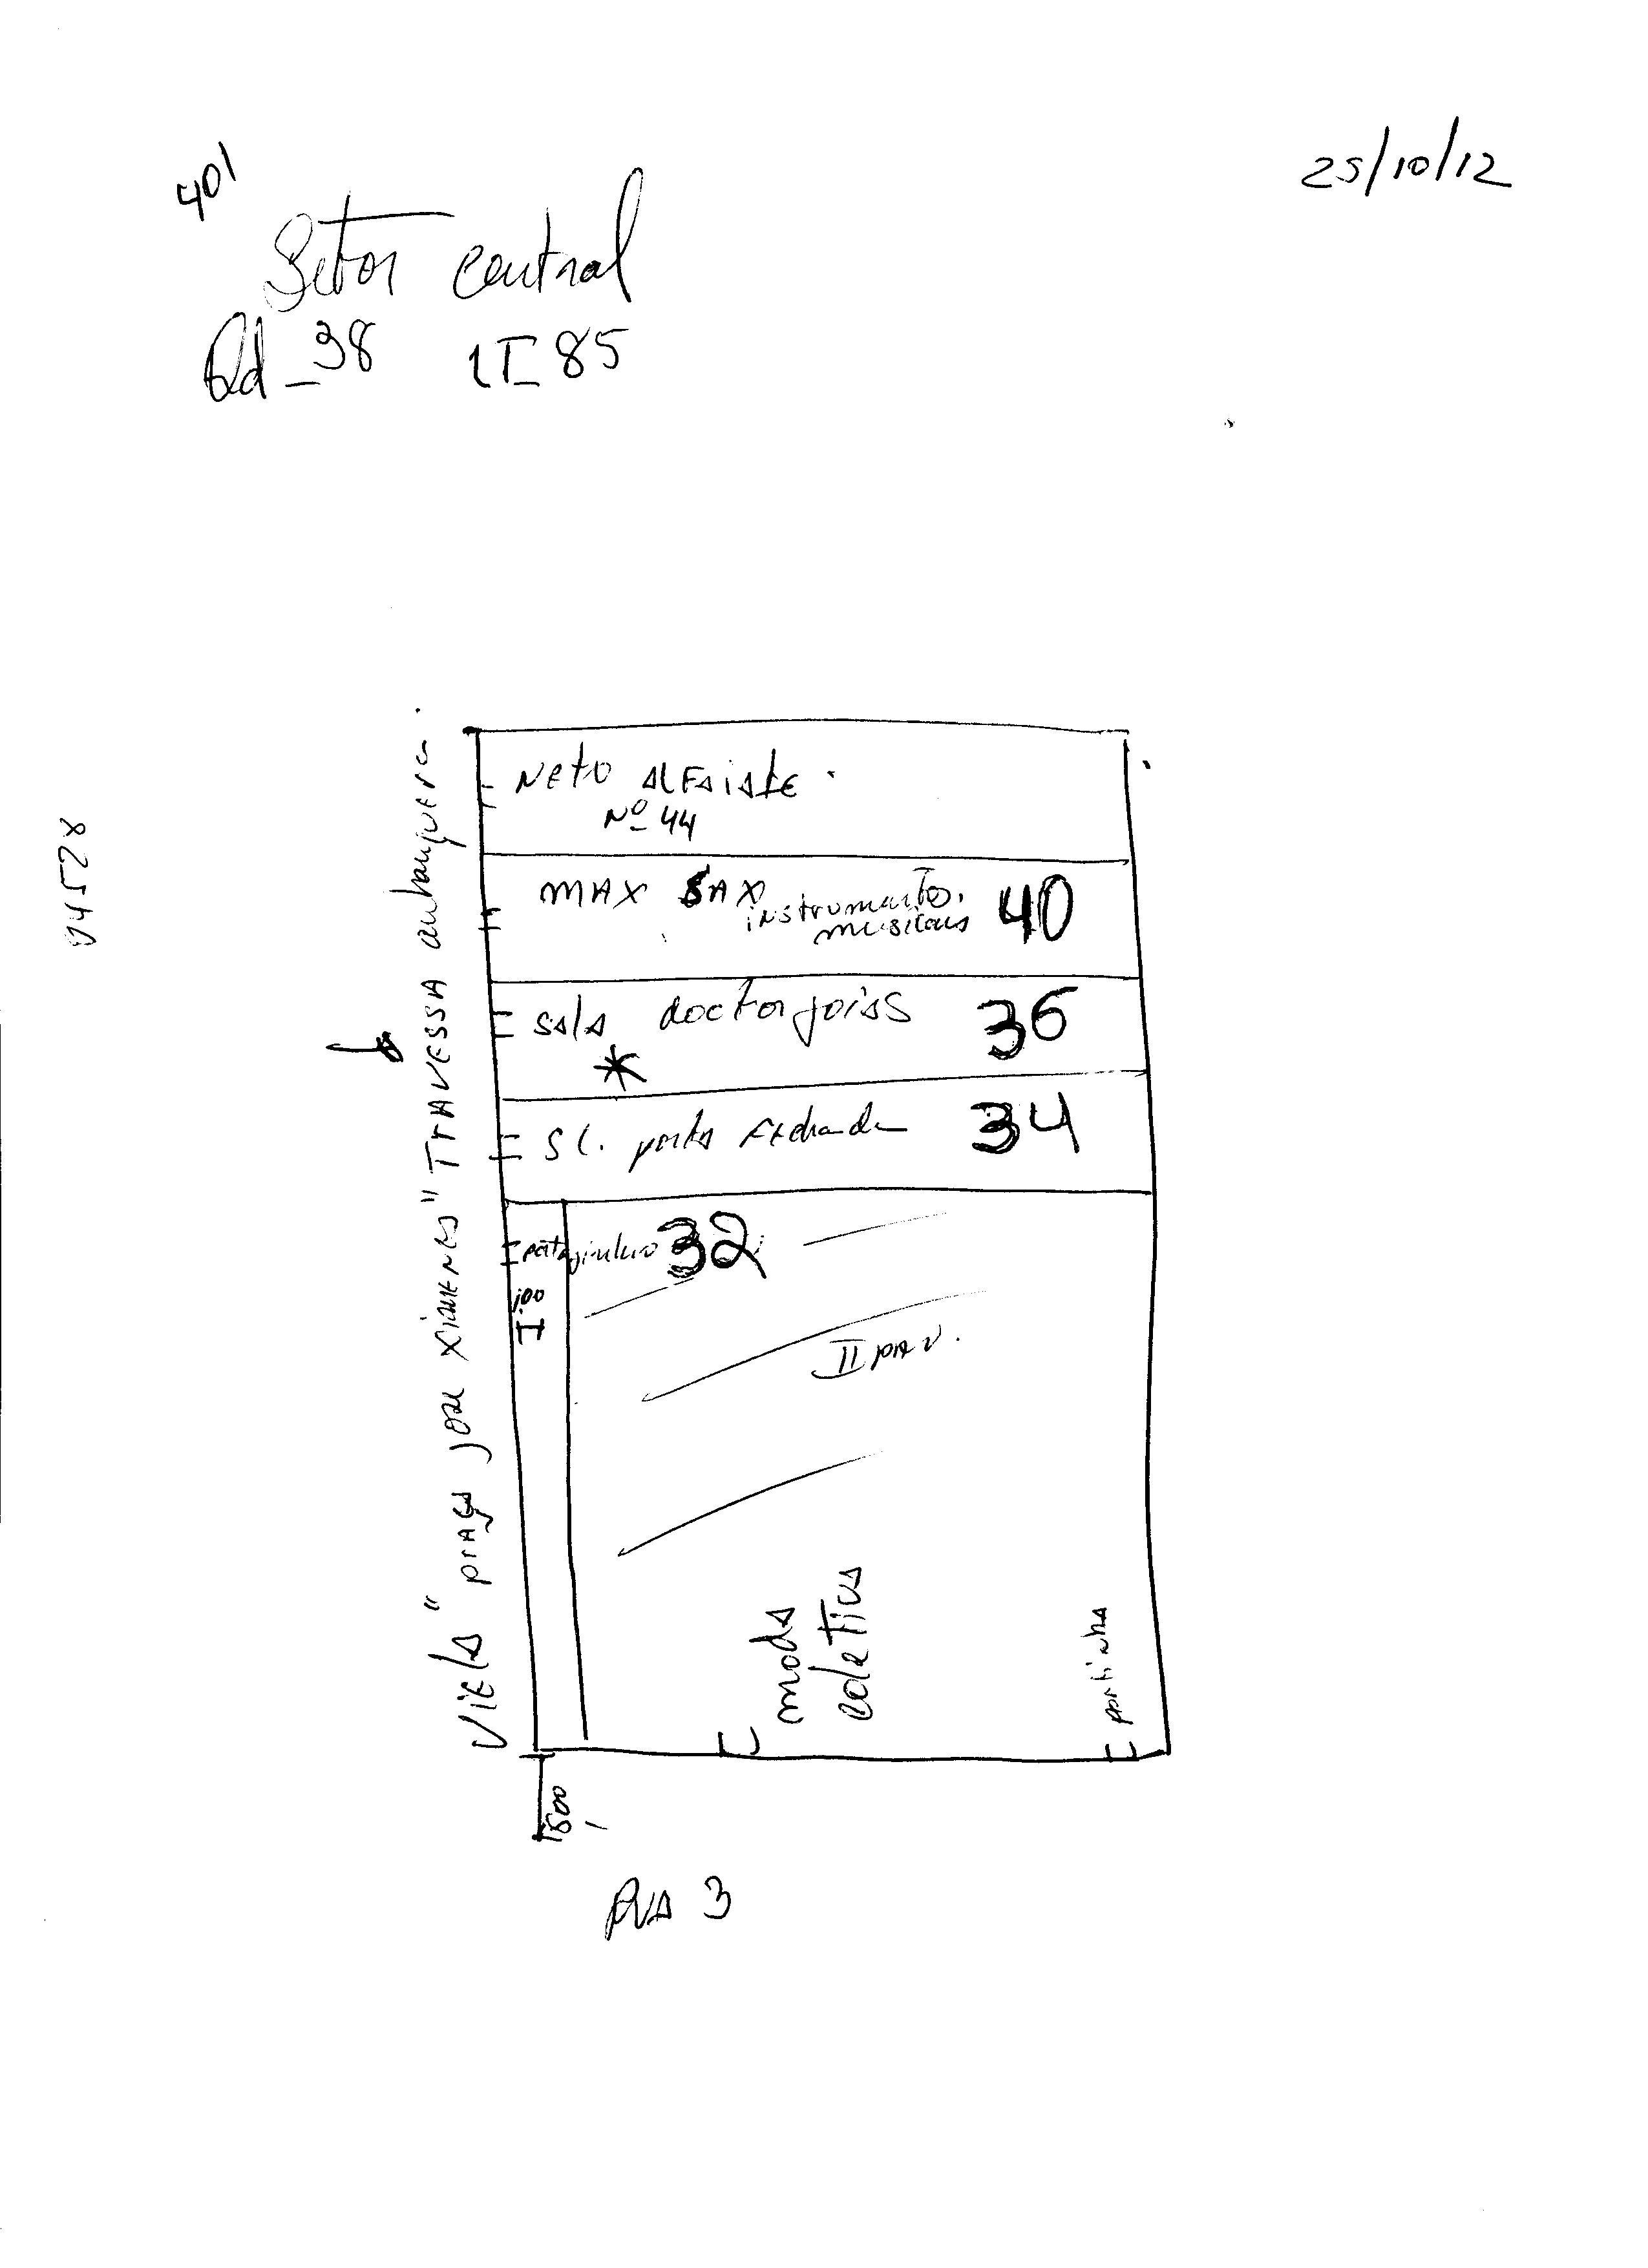 401
25/10/12
Setor central
Qd_38 LT_85
04528
Neto alfaiate
Nº 44
MAX SAX instrumentos musicais 40
sala doctor joias 36
*
SL. porta fechada 34
32
1.00
II pav.
moda
coletiva
portinha
Viela "praça José Ximenes" Travessa anhanguera
500
RUA 3